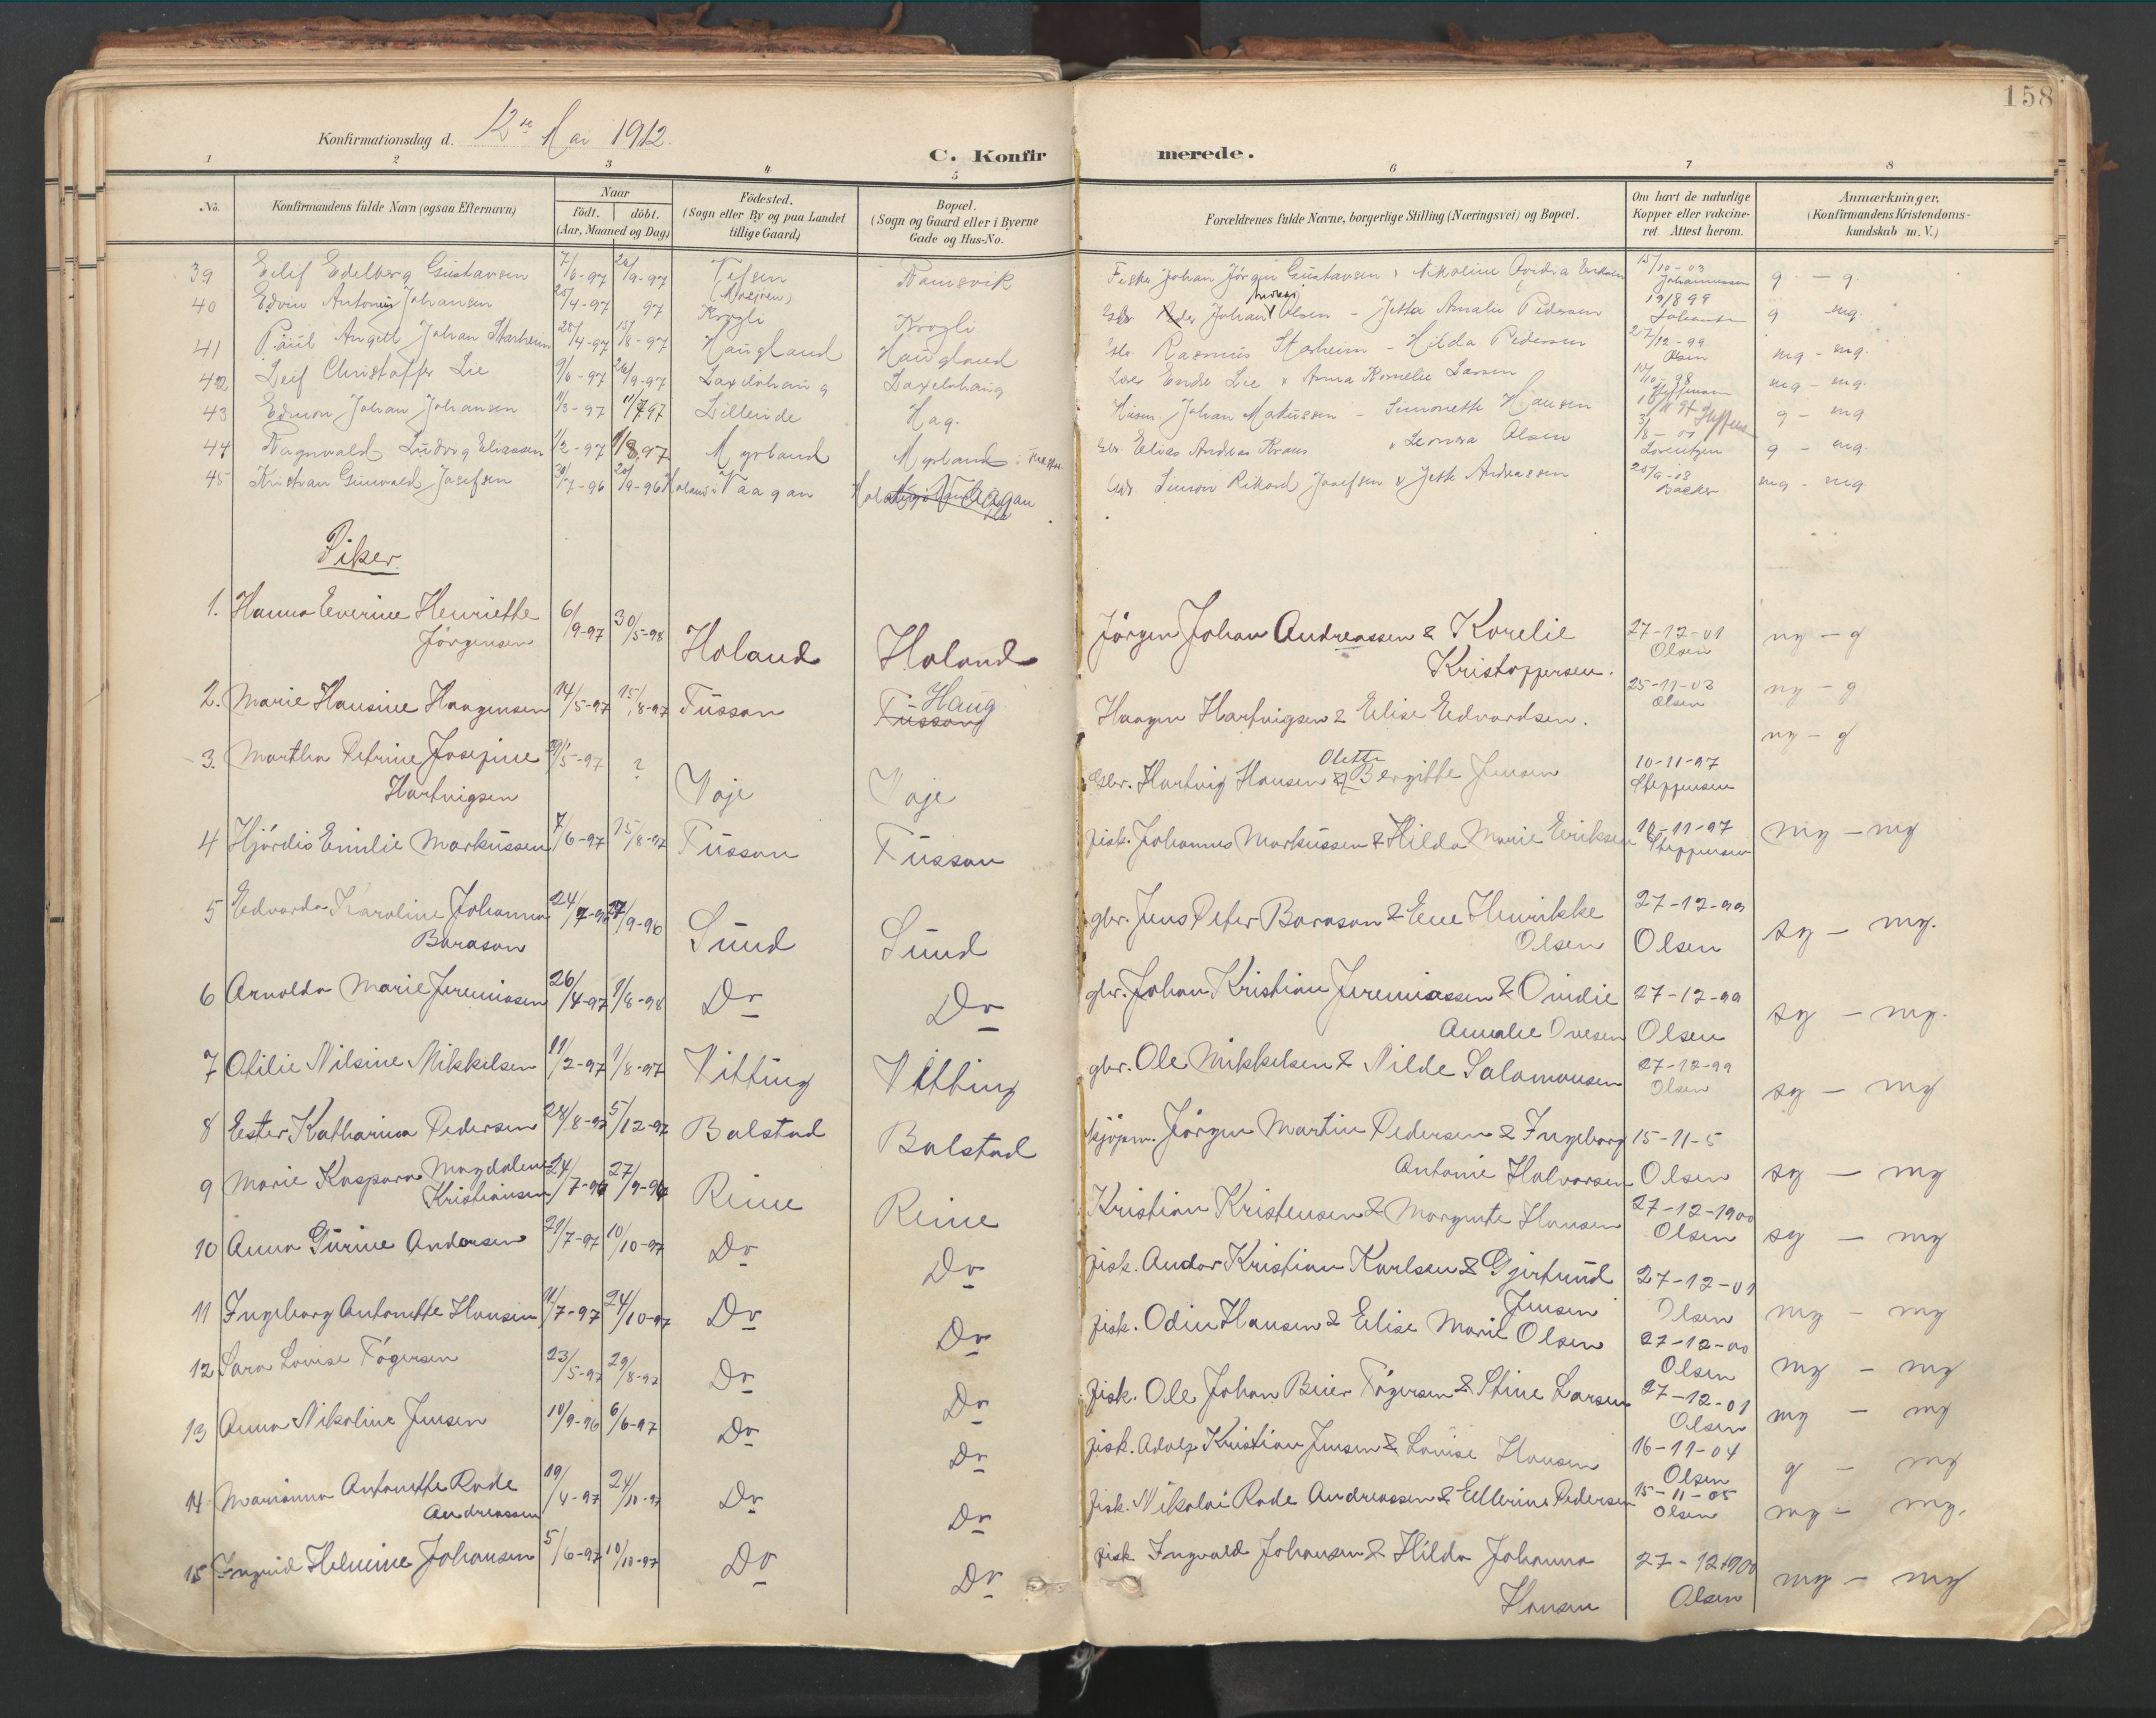 158
Konfirmationsdag d. 12te Mai 1912.
C. Konfirmerede.
1 2 3 4 5 6 7 8
No. Konfirmandens fulde Navn (ogsaa Efternavn) Naar födt. döbt. (Aar, Maaned og Dag) Födested. (Sogn eller By og paa Landet tillige Gaard) Bopæl. (Sogn og Gaard eller i Byerne Gade og Hus-No. Forældrenes fulde Navne, borgerlige Stilling (Næringsvei) og Bopæl. Om havt de naturlige Kopper eller vakcineret. Attest herom. Anmærkninger. (Konfirmandens Kristendomskundskab m. V.)
39 Eilif Edelberg Gustavsen 7/6-97 26/9-97 Vefsen (Mosjöen) Ramsvik Fisker Johan Jörgen Gustavsen & Nikoline Ovidia Eriksen 15/10-03 Johannessen g - g.
40 Edvin Antonius Johansen 4-97 97 Krogli Krogli Johan Olsen - Jetta Amalie Pedersen 19/8 99 g mg.
41 Paul Angell Johan Starheim 28/4-97 15/8-97 Haugland Haugland Rasmus Starheim - Hilda Pedersen 27/12-99 Olsen mg - mg.
42 Leif Christoffer Lie 9/6-97 26/9-97 Laxelvhaug Laxelvhaug Endre Lie & Anna Kornelie Larsen 98 Steffensen mg - mg.
43 Edmon Johan Johansen 11/3-97 11/7 97 Lilleeide Hag. Husm. Johan Makussen - Simonette Hansen Steffens g - mg
44 Ragnvald Ludvig Eliassen 1/2-97 1/8 97 Myrland Myrland Gbr. Elias Andreas Kraus & Leonora Olsen 3/8-01 Lorentzen g - mg.
45 Kristian Grunvald Josefsen 30/7-96 20/9-96 Holand i Vaagan Gbr. Simon Rikard Josefsen & Jette Andreassen 20/9-08 Backer mg - mg.
Piker.
1. Hanna Everine Henriette Jörgensen 6/9-97 30/5-98 Holand Holand Jörgen Johan Andreassen & Korelie Kristoffersen. 27-12-01 Olsen ng - g
2. Marie Hansine Haagensen 14/5-97 15/8-97 Fusson Fusson Haug Haagen Hartvigsen & Elise Edvardsen. 25-11-03 Olsen ng - g
3. Martha Petrine Josefine Hartvigsen 29/5-97 ? Voje Voje Gbr. Hartvig Hansen & Olette Bergitte Jensen 10-11-97 Steffensen ng - g
4 Hjördis Emilie Markussen 7/6-97 15/8-97 Fusson Fusson fisk. Johannes Markussen & Hilda Marie Eriksen 10-11-97 Steffensen mg - mg
5 Edvarda Karoline Johanna Barason 24/7-96 27/9-96 Sund Sund gbr. Jens Peter Barason & Ene Henrikke Olsen 27-12-99 Olsen sg - mg.
6 Arnolda Marie Jeremiassen 26/4-97 1/8-98 Do Do gbr. Johan Kristian Jeremiassen & Ovidie Amalie Ovesen 27-12-99 Olsen sg - mg.
7 Otilie Nilsine Mikkelsen 11/2-97 1/8-97 Vitting Vitting gbr. Ole Mikkelsen & Nilde Salamonsen 27-12-99 Olsen sg - mg
8 Ester Katharina Pedersen 28/8-97 5/12-97 Balstad Balstad kjöpm. Jörgen Martin Pedersen & Ingeborg Antonie Halvorsen 15-11-5 Olsen sg - mg
9 Marie Kaspara Magdalene Kristiansen 24/7-96 27/9-96 Reine Reine Kristian Kristensen & Margrete Hansen 27-12-1900 Olsen sg - mg
10 Anna Gurine Andersen 21/7-97 10/10-97 Do Do fisk. Andor Kristian Karlsen & Gjertrud Jensen 27-12-01 Olsen mg - mg
11 Ingeborg Antonette Hansen 11/7-97 24/10-97 Do Do fisk. Odin Hansen & Elise Marie Olsen 27-12-00 Olsen mg - mg
12 Sara Lovise Fögersen 23/5-97 29/8-97 Do Do fisk. Ole Johan Beier Fögersen & Stine Larsen 27-12-01 Olsen mg - mg
13 Anna Nikoline Jensen 10/9-96 6/6-97 Do Do fisk. Adolf Kristian Jensen & Lovise Hansen 16-11-04 Olsen g - mg
14 Marianna Antonette Rode Andreassen 19/4-97 24/10-97 Do Do fisk. Nikolai Rode Andreassen & Ellerine Pedersen 15-11-05 Olsen mg - mg.
15 Ingrid Helmine Johansen 5/6-97 10/10-97 Do Do fisk Ingvald Johansen & Hilda Johanna Hansen 27-12-1900 Olsen mg - mg